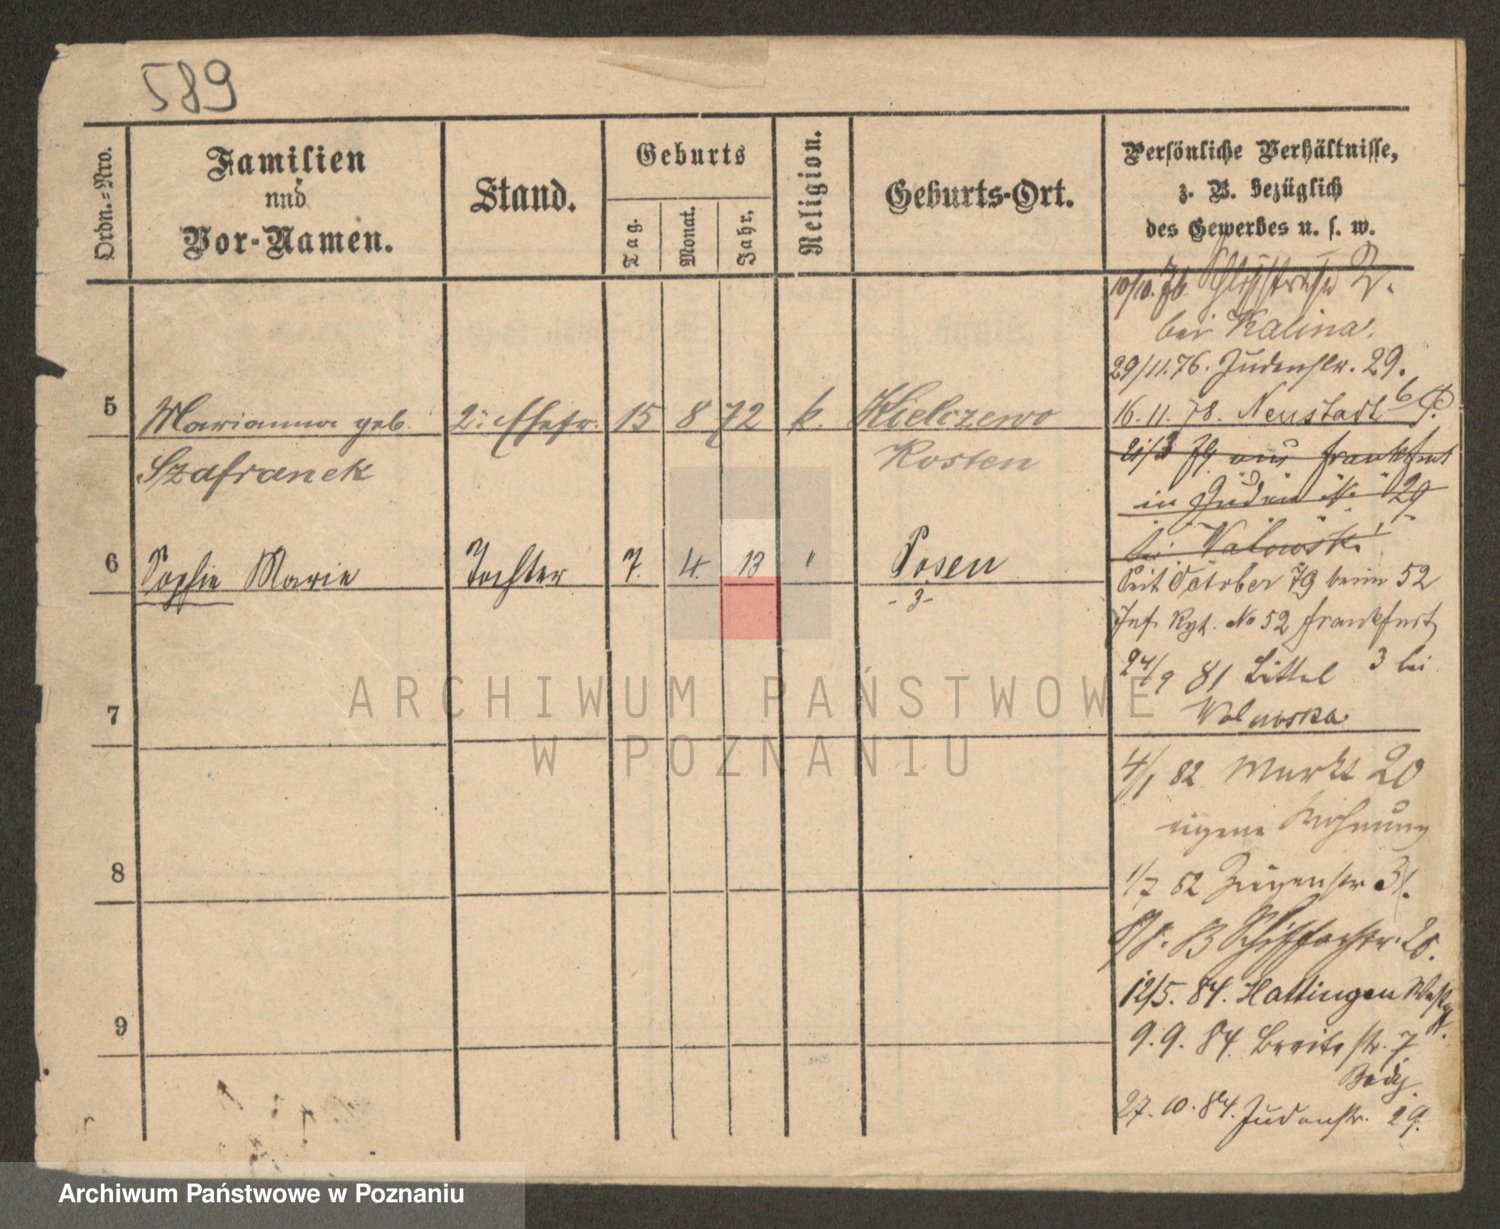 589
Ordn.-Nro.
Familien
und
Vor-Namen.
Stand.
Geburts
Tag.
Monat.
Jahr.
Religion.
Geburts-Ort.
Persönliche Verhältnisse,
z. B. bezüglich
des Gewerbes u. s. w.
5
Marianna geb.
Szafranek
2. Ehefr.
15
8
72
k.
Kielczewo
Kosten
6
Sophie Marie
Tochter
7.
4.
13
"
Posen
-3-
7
8
9
10/10. 76 Schloßstraße 2.
bei Kalina.
29/11. 76. Judenstr. 29.
16. 11. 78. Neustadt
79 aus Frankfurt
in Juden str. 29
bei
Seit October 79 beim 52
Inf. Rgt. No 52 Frankfurt
24/9 81 Bittel 3 bei
4/1 82 Markt 20
eigene Wohnung
1/7 82 Ziegenstr 31.
12/5. 84. Hattingen
9. 9. 84. Breite str. 7
27. 10. 84. Judenstr. 29.
ARCHIWUM PAŃSTWOWE
W POZNANIU
Archiwum Państwowe w Poznaniu